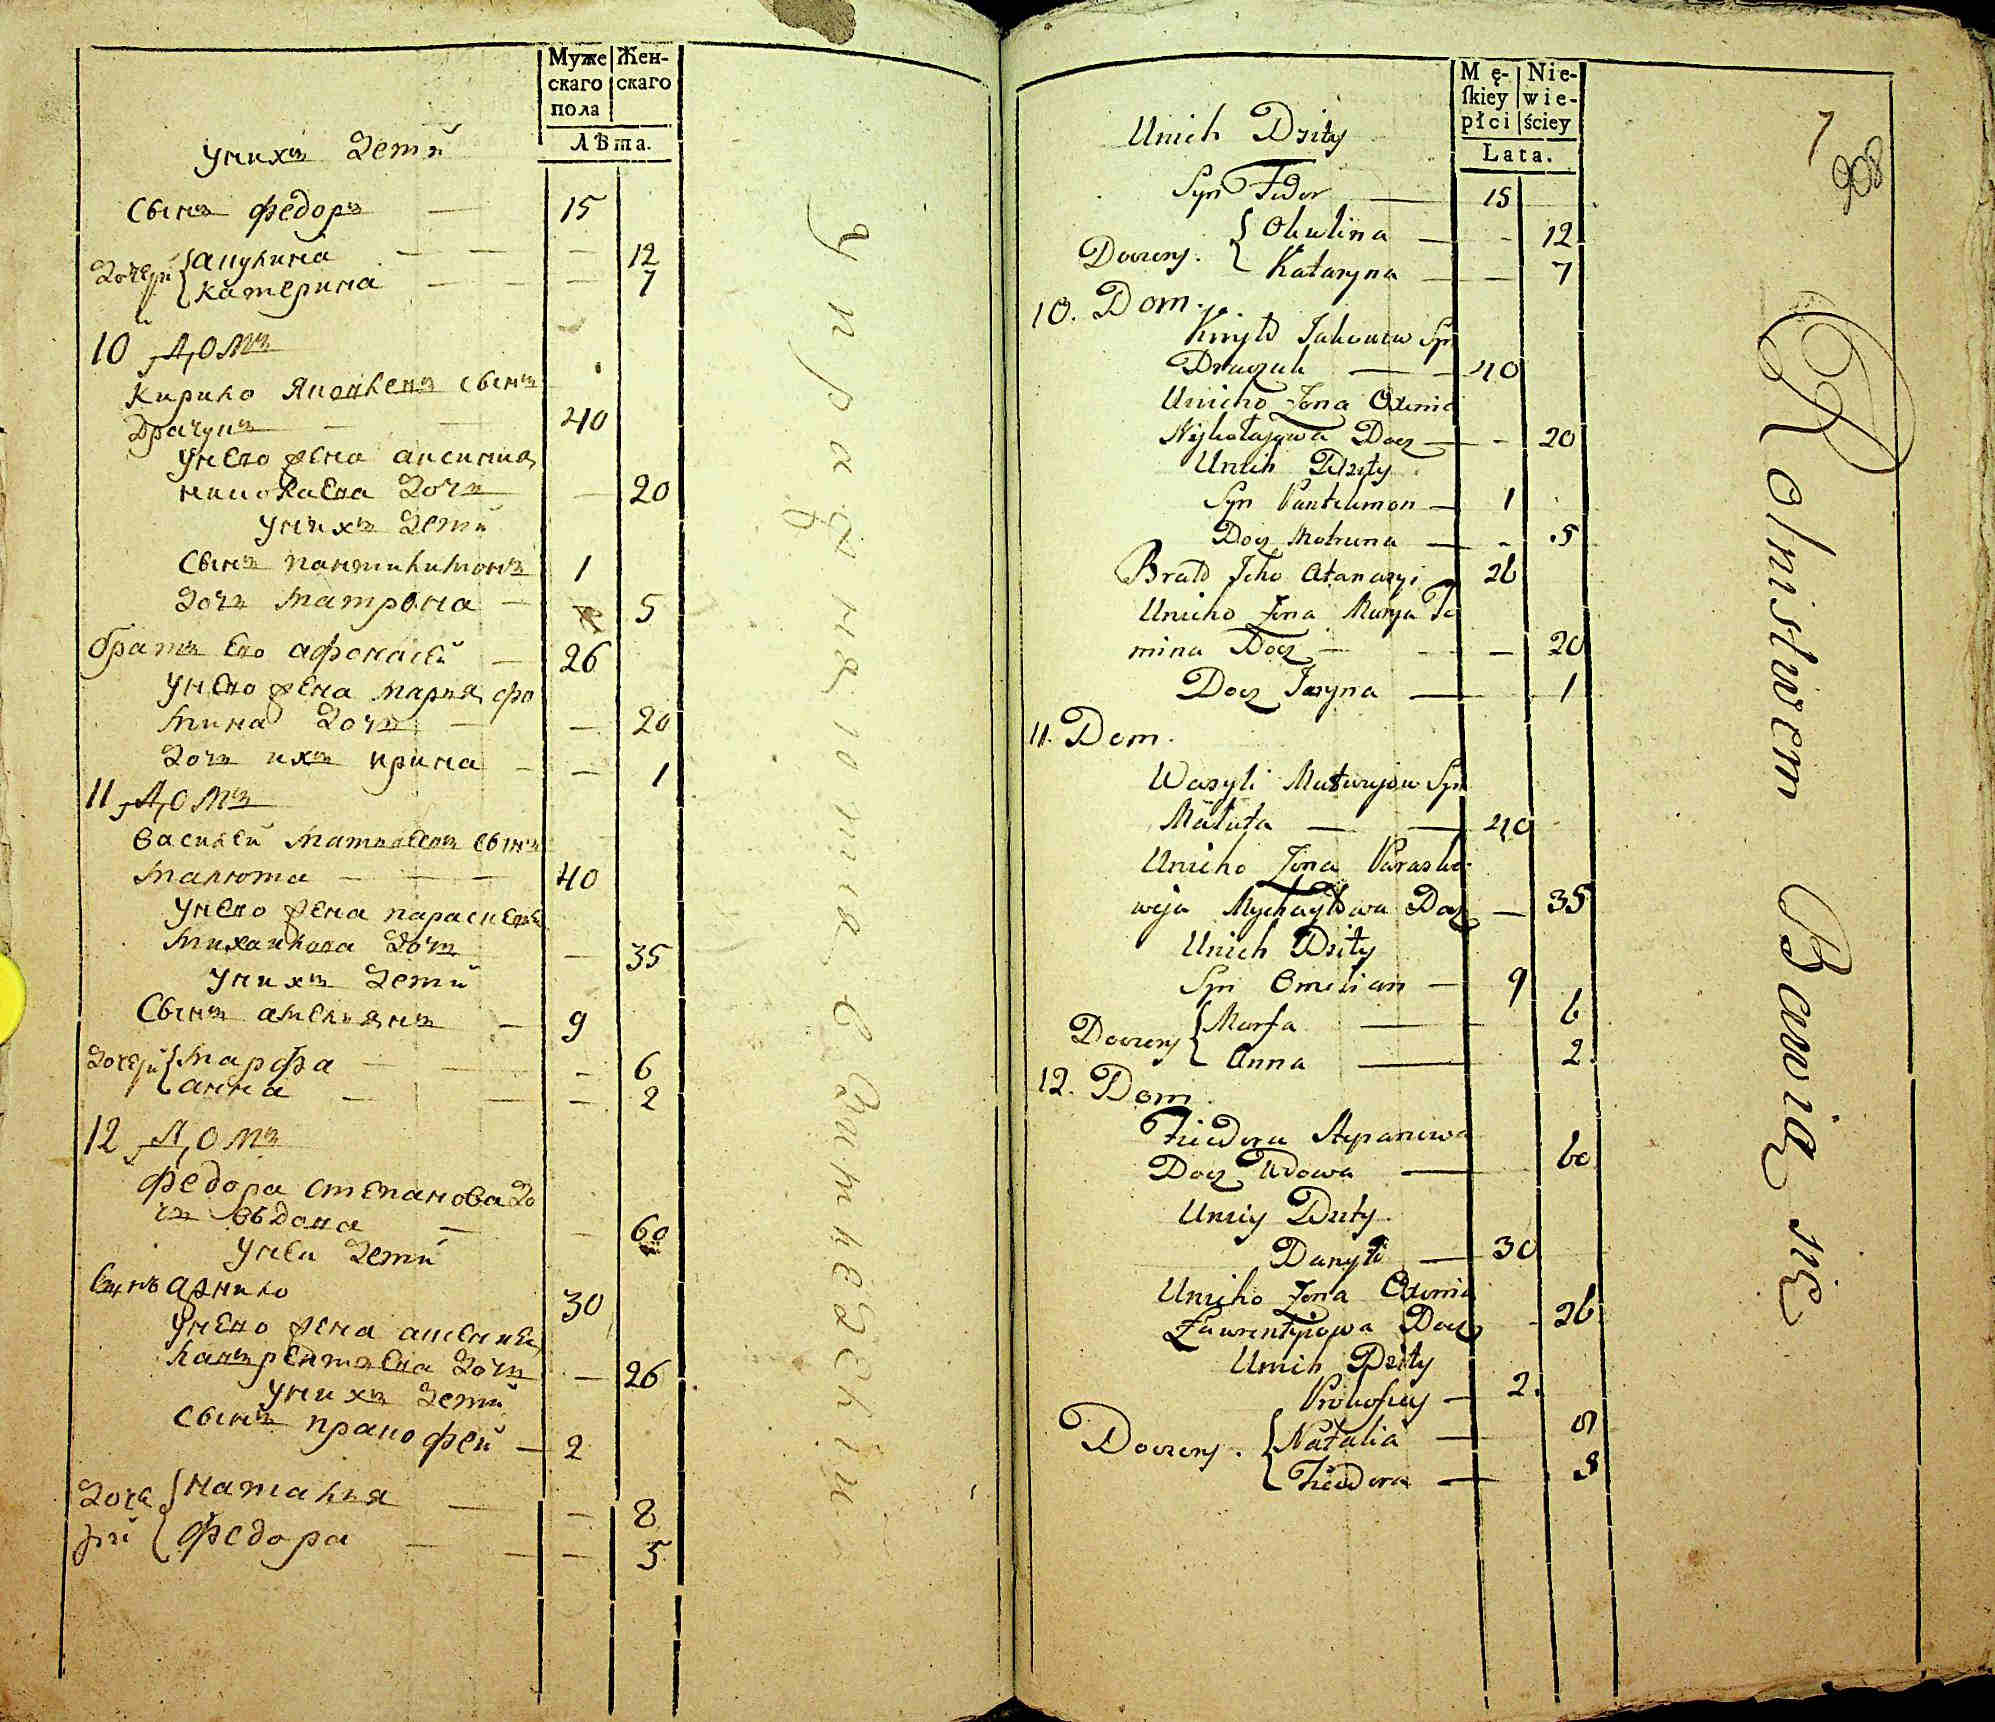 Муже
скаго
пола
Жен-
скаго
Лѣта.
Унихъ Дети
Сынъ Федоръ — 15
Дочери Акулина — — — 12
Катерина — — — 7
10 Домъ
Кирило Яковлевъ сынъ
Драчукъ — — 40
Унево жена аксиния
николаева дочь — 20
Унихъ дети
Сынъ пантилимонъ 1
дочь матрона — 5
братъ Ево афонасей — 26
Унево жена мария фо
мина дочь — — 20
дочь ихъ ирина — — 1
11 Домъ
Василей матвеевъ сынъ
малюта — — — 40
Унево жена параскевия
михаилова дочь — 35
Унихъ дети
Сынъ амелиянъ — 9
дочери марфа — — 6
анна — — — 2
12 Домъ
Федора степанова до
чь вдова — — 60
Унеи дети
Сынъ данило 30
Унево жена аксиния
лаврентьева дочь — 26
Унихъ дети
Сынъ пракофей — 2
доче наталья — — 8
ри Федора — — — 5
Упражняютца в Занке
Mę-
ſkiey
płci
Nie-
wie-
ściey
Lata.
7
908
Unich Dzity
Syn Fedor — 15
Doczery. Okulina — - 12
Kataryna — — 7
10. Dom.
Kiryło Jakowiw Syn
Draczuk — - 40
Unieho Żona Oxenia
Nykołajowa Docz — - 20
Unich Dzity
Syn Pantelimon — 1
Docz Motruna — - 5
Brato Jeho Atanazyi 26
Unieho Żona Marya Fo
mina Docz — - — 20
Docz Jaryna — 1
11. Dom.
Wasyli Matwiejow Syn
Maluta — — 40
Unieho Żona Paraske
wija Mychayłowa Docz — 35
Unich Dzity
Syn Omelian — 9
Doczery Marfa — 6
Anna — 2
12. Dom.
Fiedora Stepanowa
Docz Wdowa — 60
Uniey Dzity
Danyło — 30
Unieho Żona Oxenia
Ławrentyiowa Docz - 26
Unich Dzity
Prokofiey — 2
Doczery. Natalia — 8
Fiedora — 5
Rolnistwem Bawią się